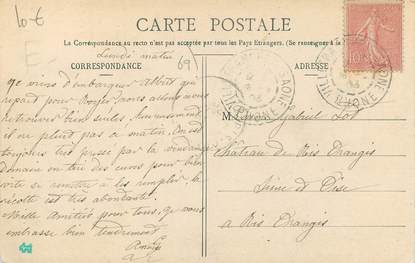 10-6
CARTE POSTALE
La Correspondance au recto n'est pas acceptée par tous les Pays Etrangers. (Se renseigner à la
Lundi matin
CORRESPONDANCE
69
ADRESSE
Je viens d'embarquer Albert qui
repart pour nous allons nous
retrouver bien seules. Heureusement
il ne pleut pas ce matin. On est
toujours très pressé par la vendange
demain on tire des cuves pour bien
vite se remettre à les remplir, la
récolte est très abondante.
Mille Amitiés pour tous, je vous
embrasse bien tendrement
M Gabriel
Château de Ris Orangis
Seine et Oise
à Ris Orangis